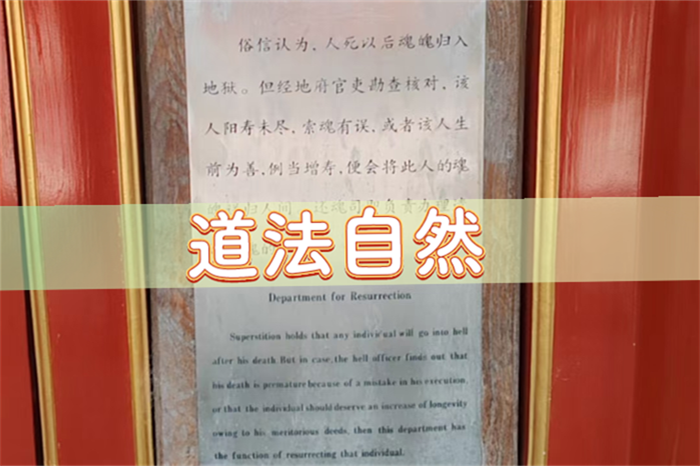 俗信认为，人死以后魂魄归入
地狱。但经地府官吏勘查核对，该
人阳寿未尽，索魂有误，或者该人生
前为善，例当增寿，便会将此人的魂
道法自然
Department for Resurrection
Superstition holds that any individual will go into hell
after his death. But in case, the hell officer finds out that
his death is premature because of a mistake in his execution,
or that the individual should deserve an increase of longevity
owing to his meritorious deeds, then this department has
the function of resurrecting that individual.